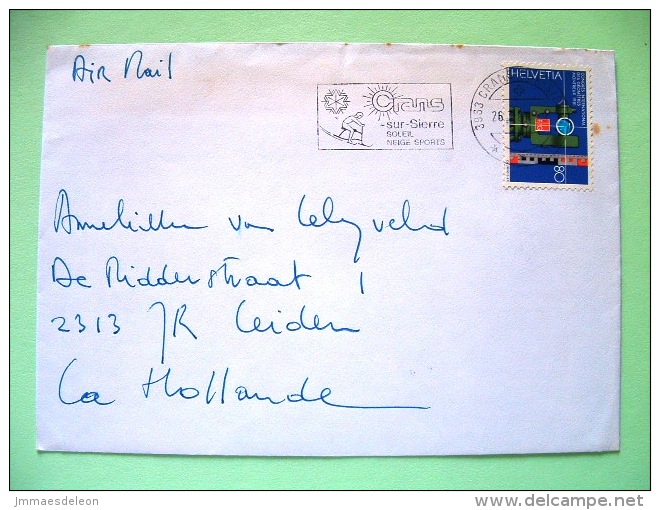 Air Mail
Crans
-sur-Sierre
SOLEIL
NEIGE SPORTS
3963 CRANS
26
HELVETIA
80
van
De Ridderstraat 1
2313 JR Leiden
La Hollande
jmmaesdeleon
delcampe.net